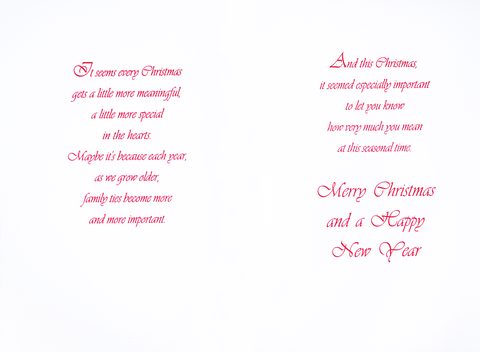 It seems every Christmas
gets a little more meaningful,
a little more special
in the hearts.
Maybe it's because each year,
as we grow older,
family ties become more
and more important.
And this Christmas,
it seemed especially important
to let you know
how very much you mean
at this seasonal time.
Merry Christmas
and a Happy
New Year